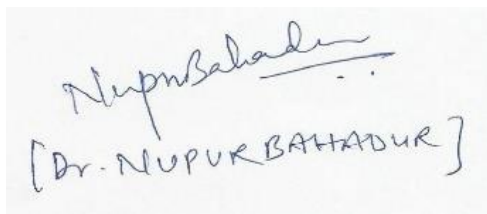 NupurBahadur
[Dr. NUPUR BAHADUR]